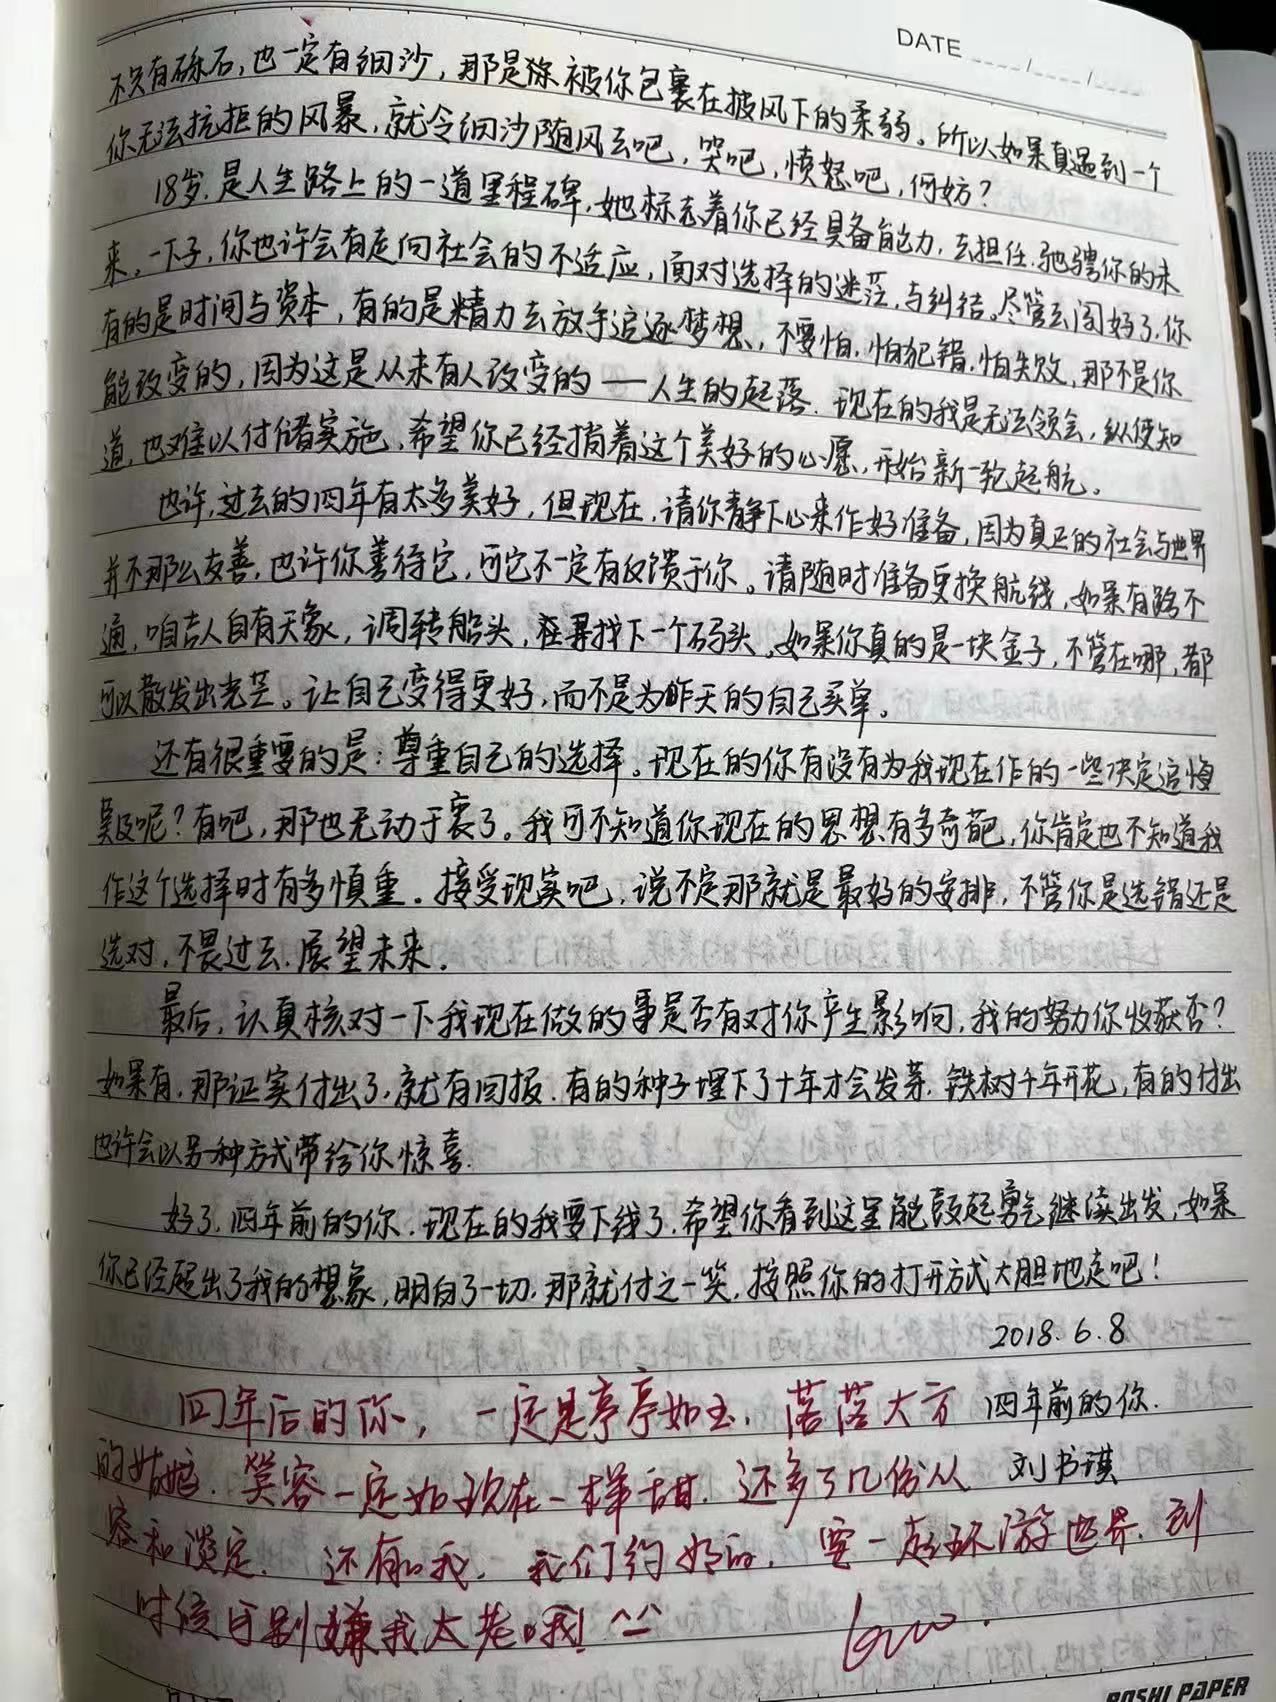 DATE
不只有砾石,也一定有细沙,那是你被你包裹在披风下的柔弱。所以如果真遇到一个
你无法抗拒的风暴,就令细沙随风去吧,哭吧,愤怒吧,何妨?
18岁,是人生路上的一道里程碑,她标志着你已经具备能力,去担任.驰骋你的未
来。一下子,你也许会有走向社会的不适应,面对选择的迷茫,与纠结。尽管去闯好了,你
有的是时间与资本,有的是精力去放手追逐梦想,不要怕,怕犯错,怕失败,那不是你
能改变的,因为这是从未有人改变的——人生的起落.现在的我是无法领会,纵使知
道,也难以付诸实施,希望你已经捎着这个美好的心愿,开始新一轮起航。
也许,过去的四年有太多美好,但现在,请你静下心来作好准备,因为真正的社会与世界
并不那么友善,也许你善待它,可它不一定有反馈于你。请随时准备更换航线,如果有路不
通,咱吉人自有天象,调转船头,在寻找下一个码头。如果你真的是一块金子,不管在哪,都
可以散发出光芒。让自己变得更好,而不是为昨天的自己买单。
还有很重要的是:尊重自己的选择。现在的你有没有为我现在作的一些决定追悔
莫及呢?有吧,那也无动于衷了。我可不知道你现在的思想有多奇葩,你肯定也不知道我
作这个选择时有多慎重。接受现实吧,说不定那就是最好的安排,不管你是选错还是
选对,不畏过去.展望未来.
最后,认真核对一下我现在做的事是否有对你产生影响,我的努力你收获否?
如果有,那证实付出了,就有回报.有的种子埋下了十年才会发芽.铁树千年开花,有的付出
也许会以另一种方式带给你惊喜.
好了,四年前的你.现在的我要下线了.希望你看到这里能鼓起勇气继续出发,如果
你已经超出了我的想象,明白了一切,那就付之一笑,按照你的打开方式大胆地走吧!
2018.6.8
四年前的你.
刘书琪
四年后的你,一定是亭亭如玉,落落大方
的姑娘.笑容一定如现在一样甜.还多了几份从
容和淡定.还有我.我们约好的,要一起环游世界.到
时候可别嫌我太老哦! ^_^
BOSHI PAPER